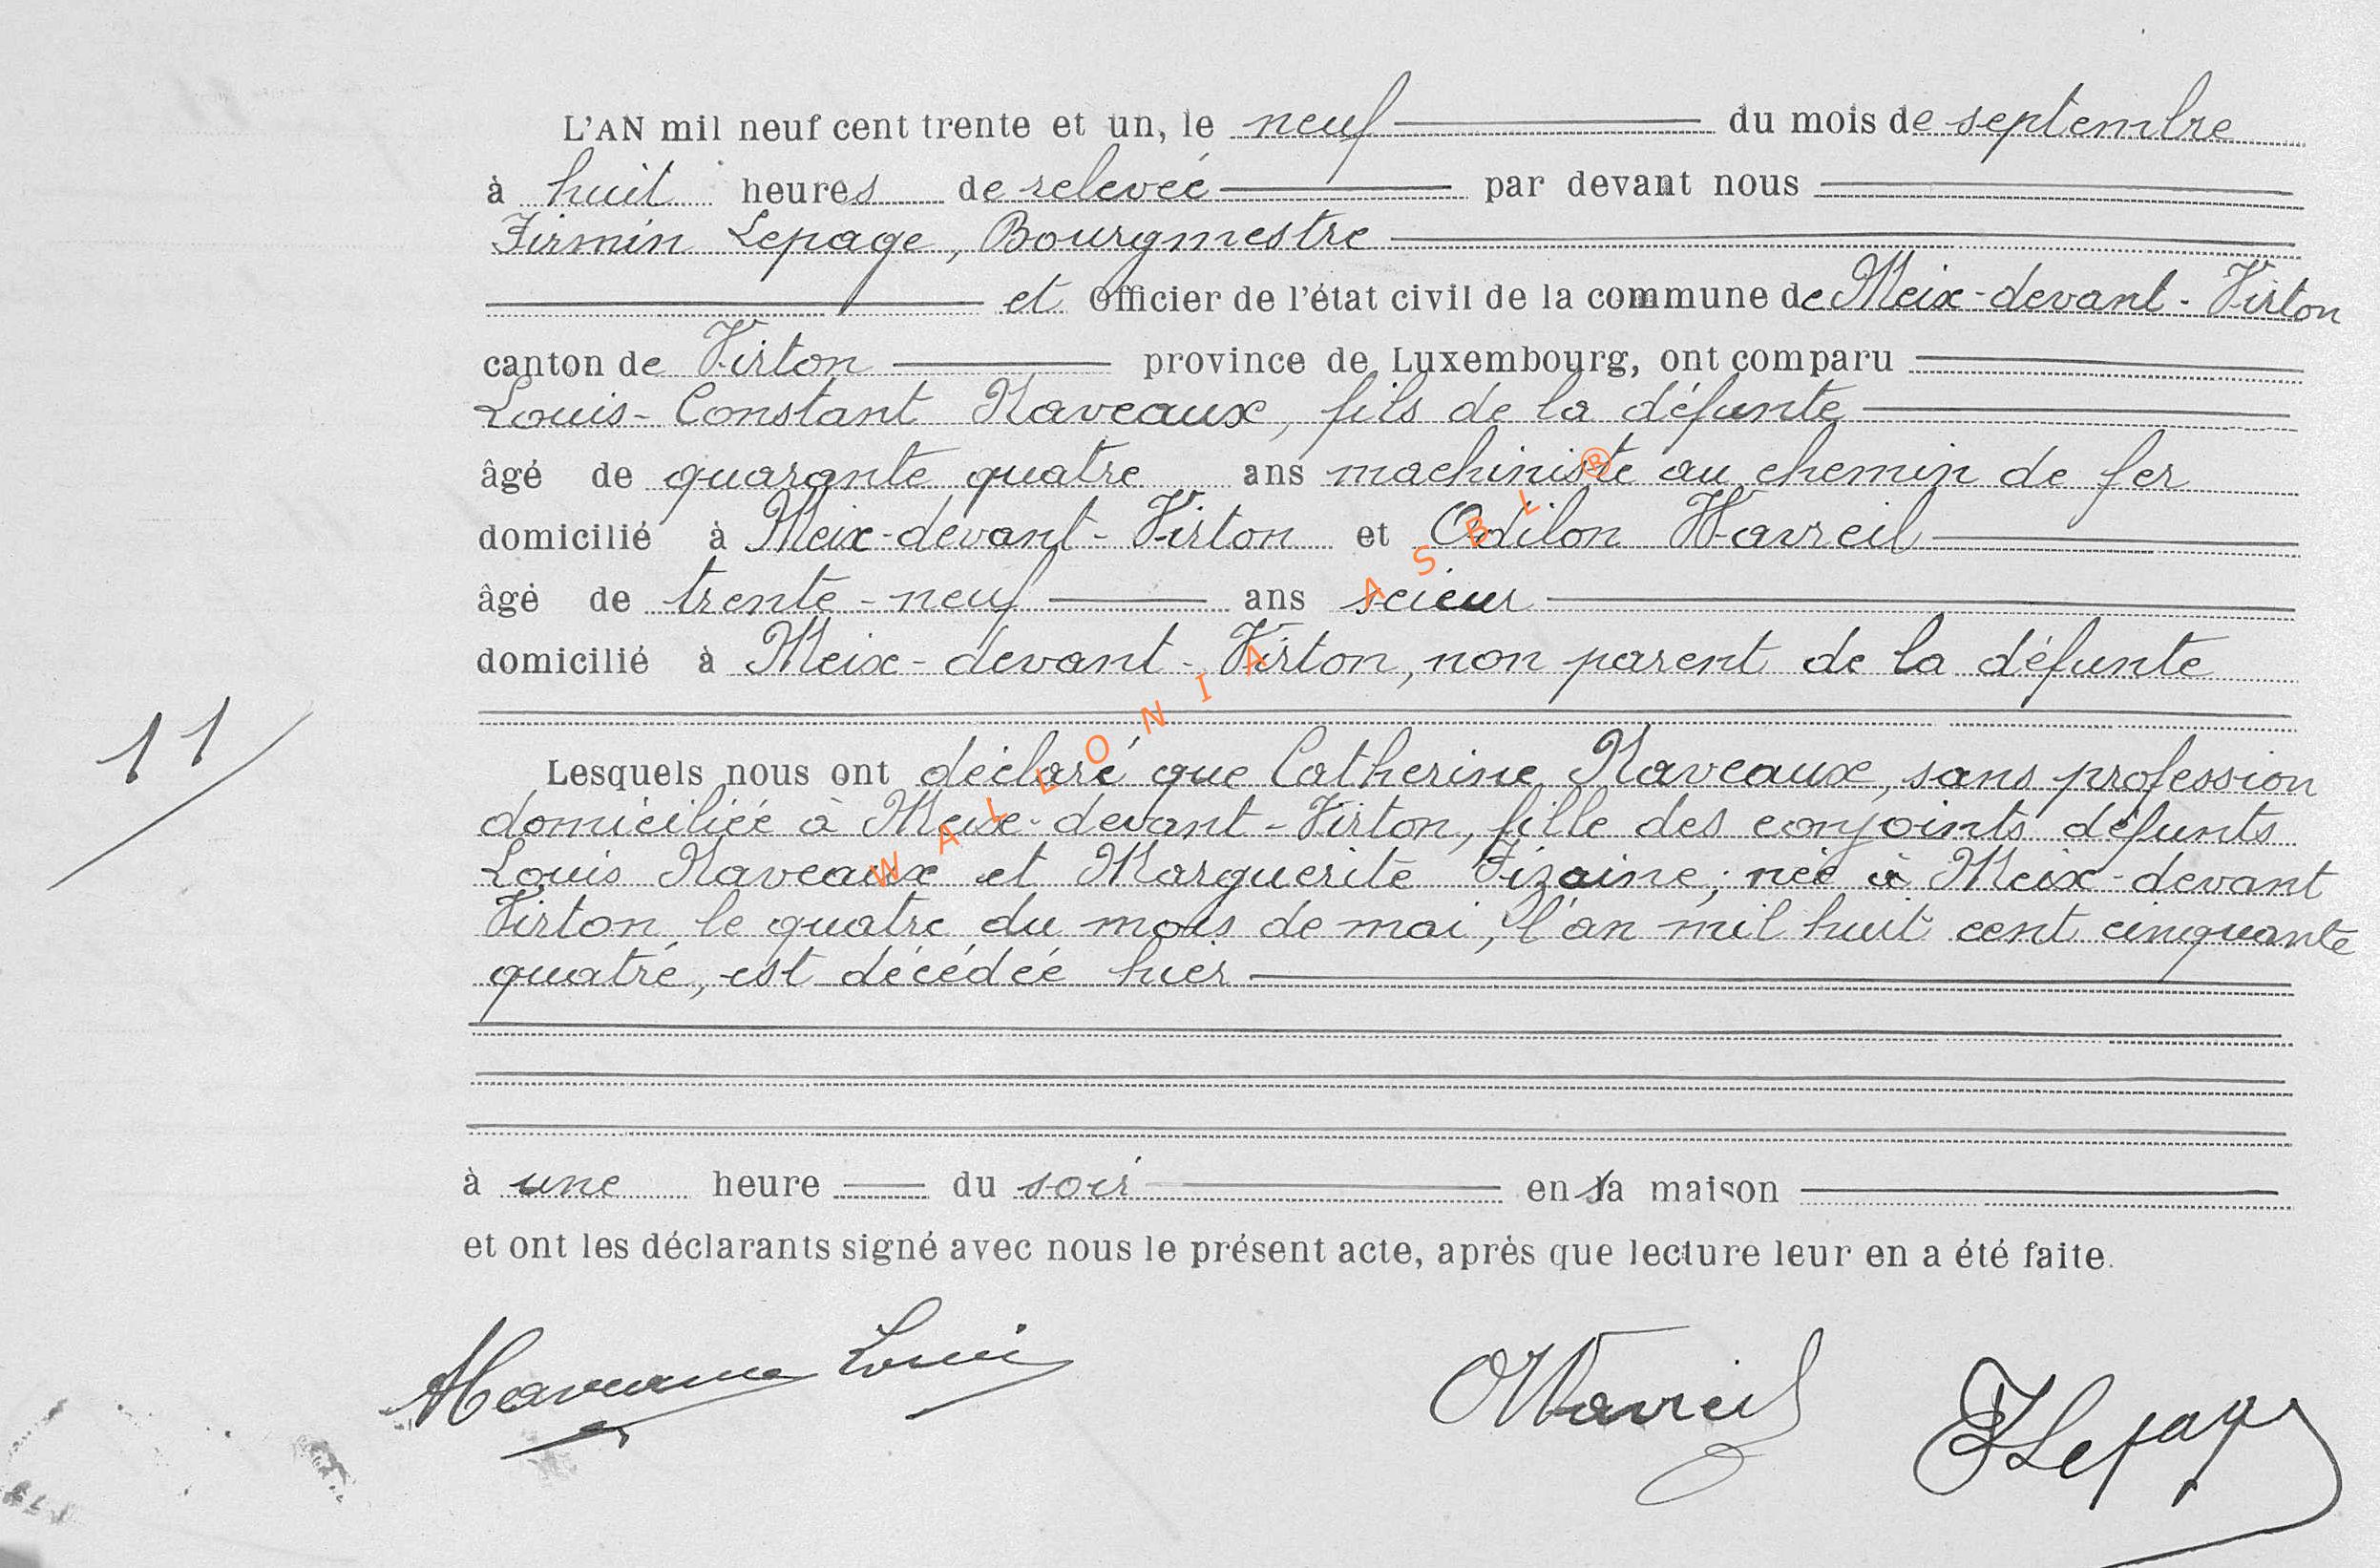 L'AN mil neuf cent trente et un, le neuf du mois de septembre
à huit heures de relevée par devant nous
Firmin Lepage, Bourgmestre
et Officier de l'état civil de la commune de Meix-devant-Virton
canton de Virton province de Luxembourg, ont comparu
Louis-Constant Naveaux, fils de la défunte
âgé de quarante quatre ans machiniste au chemin de fer
domicilié à Meix-devant-Virton et Odilon Wavreil
âgé de trente-neuf ans scieur
domicilié à Meix-devant-Virton, non parent de la défunte
11
Lesquels nous ont déclaré que Catherine Naveaux, sans profession
domiciliée à Meix-devant-Virton, fille des conjoints défunts
Louis Naveaux et Marguerite Fizaine; née à Meix-devant
Virton le quatre du mois de mai, l'an mil huit cent cinquante
quatre, est décédée hier
à une heure du soir en sa maison
et ont les déclarants signé avec nous le présent acte, après que lecture leur en a été faite.
Naveaux Louis OWavreil FLepage
WALLONIA ASBL ®